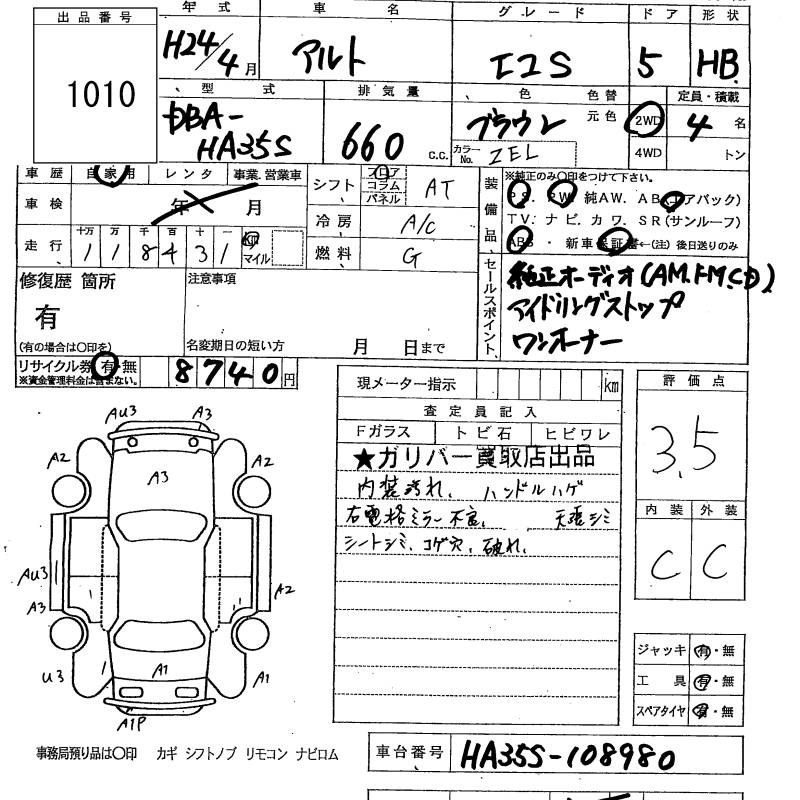 出品番号
1010
年式 車名 グレード ドア 形状
H24/4月 アルト エコS 5 HB
型式 排気量 色 色替 定員・積載
DBA-HA35S 660 C.C. ブラウン 元色 2WD 4名
カラーNo. ZEL 4WD トン
車歴 自家用 レンタ 事業.営業車
車検 年 月
走行 十万 万 千 百 十 一
118431 km マイル
シフト フロア コラム パネル AT
冷房 A/C
燃料 G
装備品 ※純正のみ〇印をつけて下さい。
P.S. P.W. 純AW. A.B(エアバック)
T.V. ナビ. カワ. S.R(サンルーフ)
ABS・新車保証書←(注)後日送りのみ
セールスポイント
純正オーディオ(AM.FM.CD)
アイドリングストップ
ワンオーナー
修復歴 箇所 注意事項
有
(有の場合は〇印を) 名変期日の短い方 月 日まで
リサイクル券 有・無 8740円
※資金管理料金は含まない。
現メーター指示 km
査定員記入
Fガラス トビ石 ヒビワレ
★ガリバー買取店出品
内装汚れ、ハンドルハゲ
右電格ミラー不良、天張シミ
シートシミ、コゲ穴、破れ、
評価点
3.5
内装 外装
C C
ジャッキ 有・無
工具 有・無
スペアタイヤ 有・無
AU3 A3
A2 A3 A2
AU3 A2
A3
U3 A1 A1
A1P
事務局預り品は〇印 カギ シフトノブ リモコン ナビロム
車台番号 HA35S-108980